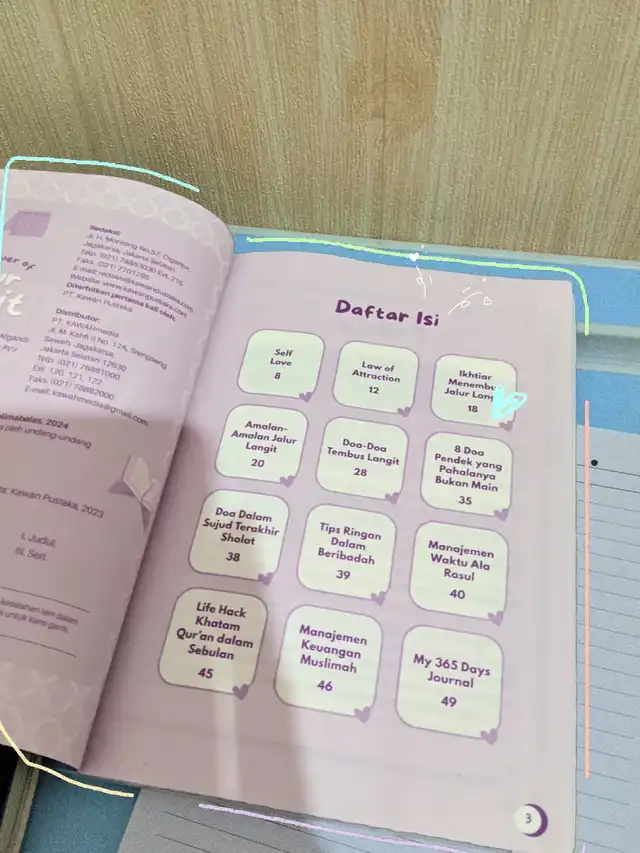 wer of
Redaksi:
Jagakarsa, Jakarta Selatan
Telp. (021) 78883030 Ext. 215
Faks. (021) 7701295
Website: www.kawanpustaka.com
Diterbitkan pertama kali oleh:
PT. Kawan Pustaka
Distributor:
PT. KAWAHmedia
Jl. M. Kahfi II No. 12A, Srengseng
Sawah, Jagakarsa,
Jakarta Selatan 12630
Telp. (021) 78881000
Ext. 120, 121, 122
Faks. (021) 78882000
E-mail: kawahmedia@gmail.com
Ayu
2024
undang-undang
Kawan Pustaka, 2023
I. Judul.
III. Seri.
Daftar Isi
Self
Love
8
Law of
Attraction
12
Ikhtiar
Jalur
18
Amalan-
Amalan Jalur
Langit
20
Doa-Doa
Tembus Langit
28
8 Doa
Pendek yang
Pahalanya
Bukan Main
35
Doa Dalam
Sujud Terakhir
Sholat
38
Tips Ringan
Dalam
Beribadah
39
Manajemen
Waktu Ala
Rasul
40
Life Hack
Khatam
Qur'an dalam
Sebulan
45
Manajemen
Keuangan
Muslimah
46
My 365 Days
Journal
49
3